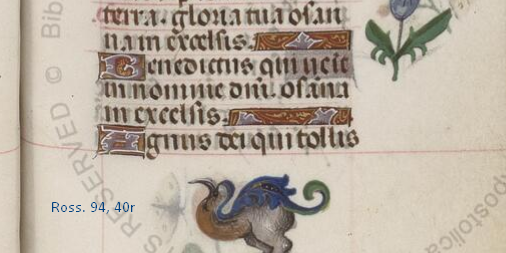 terra. gloria tua osan
na in excelsis.
Benedictus qui venit
in nomine dni. osana
in excelsis.
Agnus dei qui tollis
Ross. 94, 40r
RESERVED © Bib
S RESERVED
apostolica